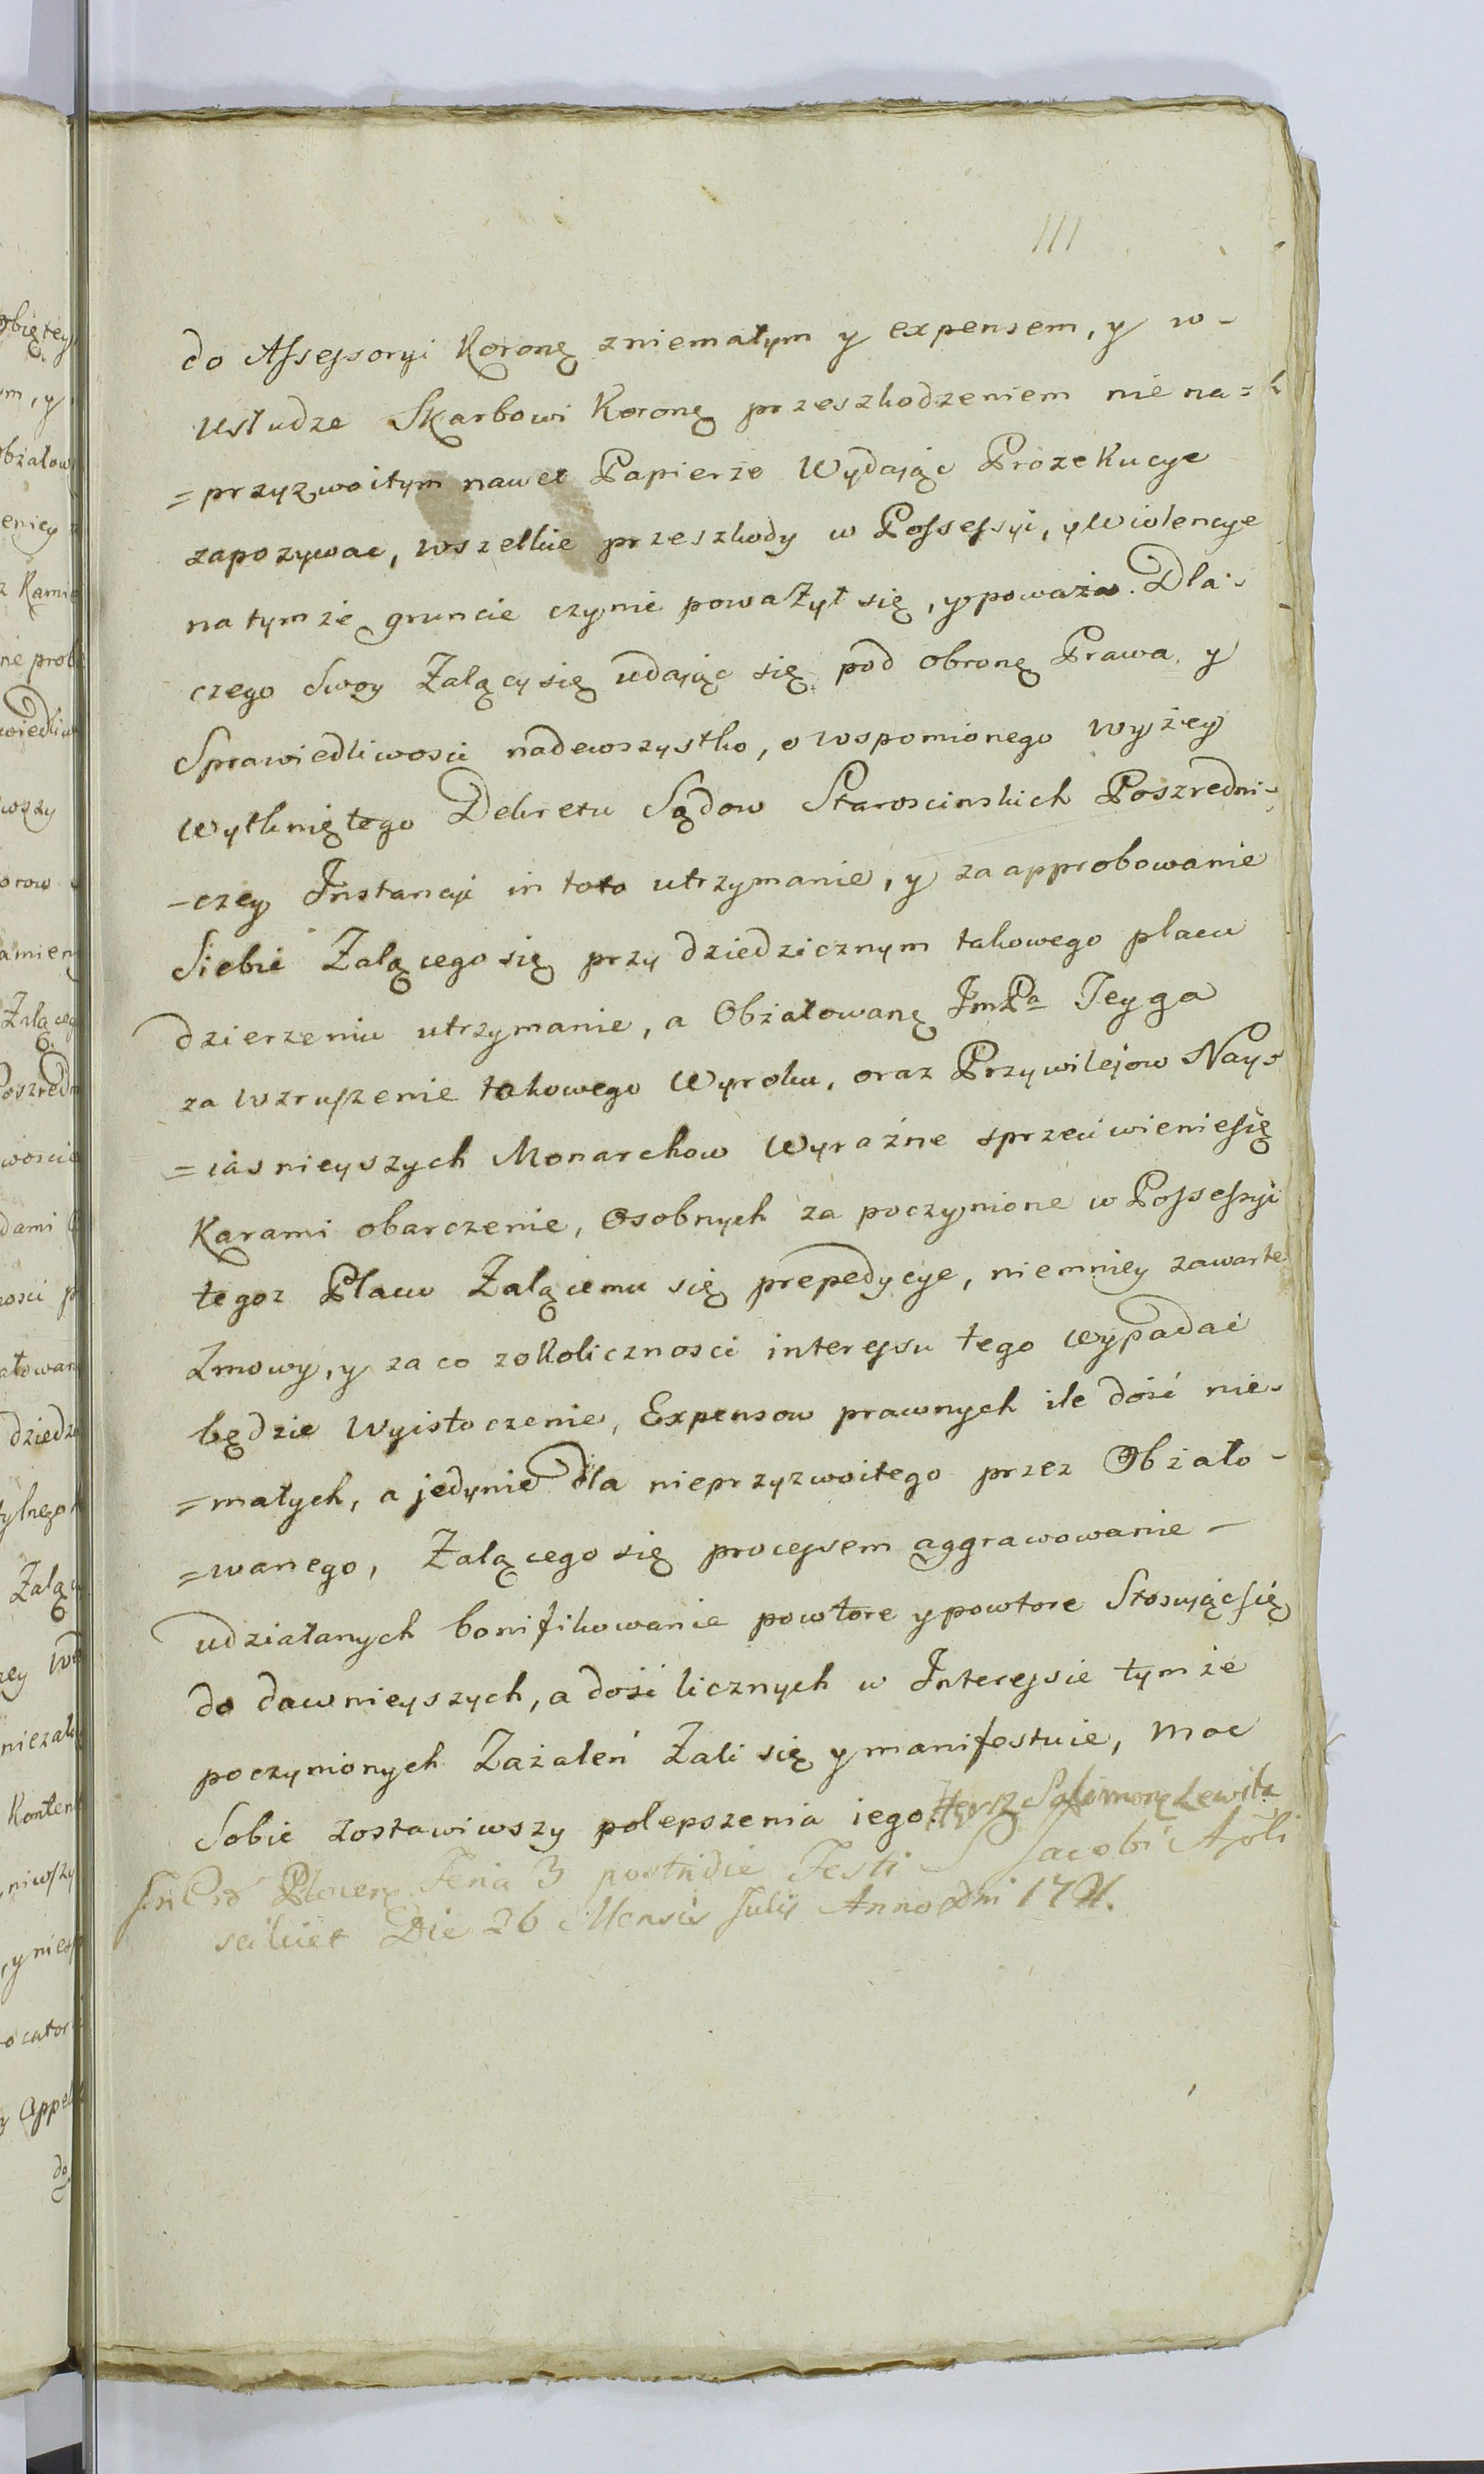 111
do Assessoryi Koronę zniemałym y expensem, y w-
usłudze Skarbowi Koronę przeszkodzeniem nie na=
=przyzwoitym nawet Papierze Wydając Prozekucye
zapozywac, wszelkie przeszkody w Possessyi, y Wiolencye
na tymże gruncie czynic poważył się, y poważa. Dla-
czego Swoy Żalący się udając się pod obronę Prawa, y
Sprawiedliwosci nadewszystko, o wspomionego wyżey
wytkniętego Dekretu Sądow Staroscinskich Poszredni-
-czey Instancyi in toto utrzymanie, y zaapprobowanie
Siebie Żalącego się przy dziedzicznym takowego placu
dzierzeniu utrzymanie, a Obżałowanę JmPa Teyga
za wzruszenie takowego Wyroku, oraz Przywilejow Nay-
=iasnieyszych Monarchow Wyraźne sprzeciwieniesię
Karami obarczenie, Osobnych za poczynione w Possessyi
tegoz Placu Żalącemu się prepedycye, niemniey zawarte
Zmowy, y za co zokolicznosci interessu tego wypadać
będzie Wyistoczenie, Expensow prawnych ile dość nie-
=małych, a jedynie dla nieprzyzwoitego przez Obżało-
=wanego, Żalącego się processem aggrawowanie-
udziałanych bonifikowanie powtore y powtore Stosującsię
do dawnieyszych, a dość licznych w Interessie tymże
poczynionych Zażaleń Żali się y manifestuie, moc
Sobie zostawiwszy polepszenia iego. Hersz Salimonę Lewita
In Feria 3 postridie Festi S Jacobi Apli
scilicet Die 26 Mensis Julij Anno Dni 1791.